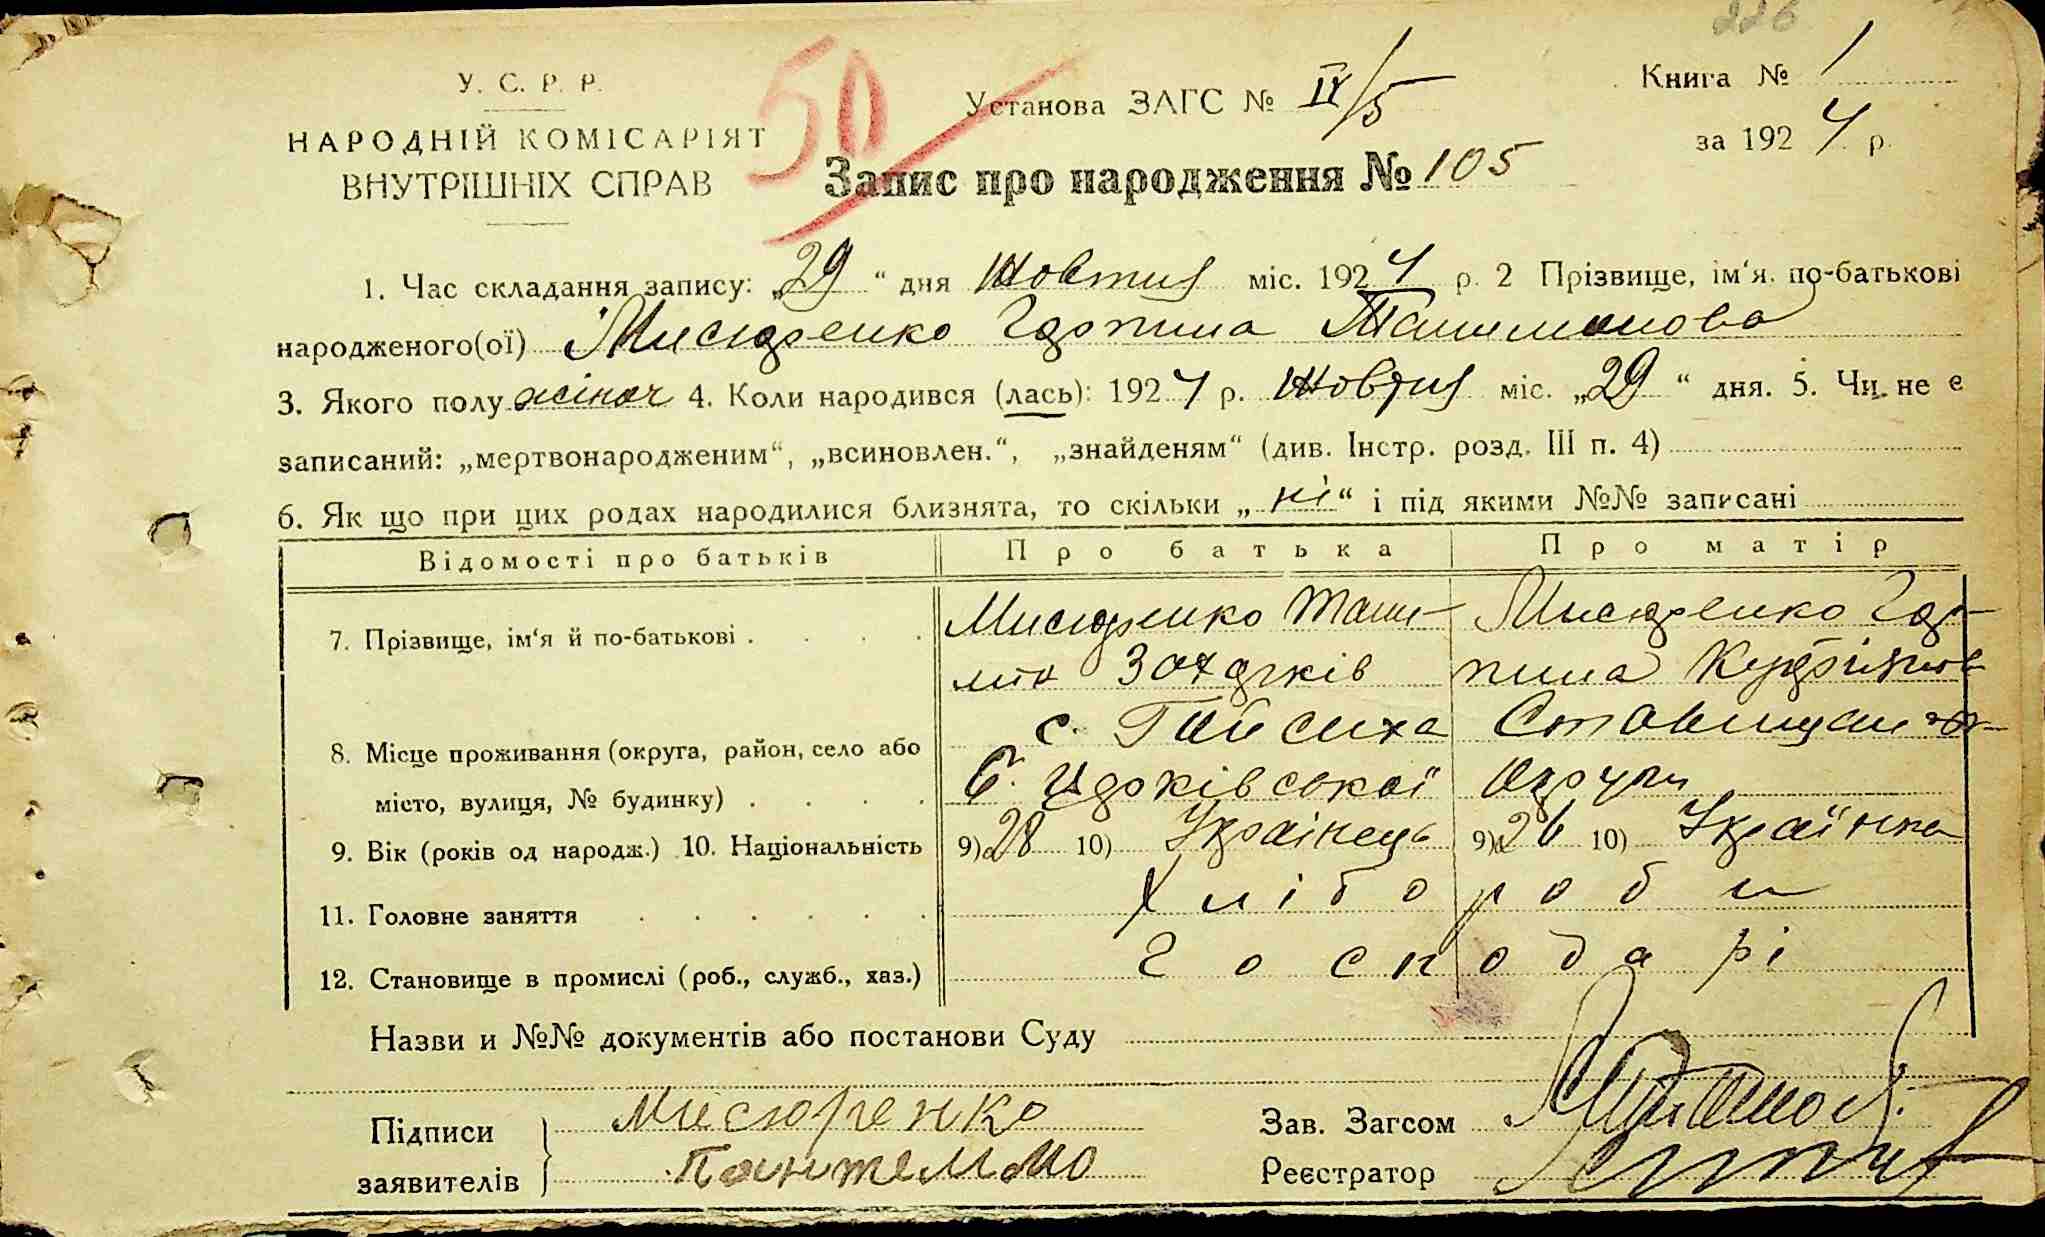 226
У. С. Р. Р.
НАРОДНІЙ КОМІСАРІЯТ
ВНУТРІШНІХ СПРАВ
50
Установа ЗАГС № IV/5
Книга № 1
за 1924 р.
Запис про народження № 105
1. Час складання запису: „29“ дня Жовтня міс. 1924 р. 2 Прізвище, ім‘я. по-батькові
народженого(ої) Мисюренко Горпина
3. Якого полу жіноч 4. Коли народився (лась): 1924 р. Жовтня міс. „29“ дня. 5. Чи не є
записаний: „мертвонародженим“, „всиновлен.“, „знайденям“ (див. Інстр. розд. III п. 4)
6. Як що при цих родах народилися близнята, то скільки „ні“ і під якими №№ записані
Відомості про батьків Про батька Про матір
7. Прізвище, ім‘я й по-батькові Мисюренко Мисюренко Гор-
пина
8. Місце проживання (округа, район, село або с. Гайсиха
місто, вулиця, № будинку) Округи
9. Вік (років од народж.) 10. Національність 9) 28 10) Українець 9) 26 10) Українка
11. Головне заняття Хлібороби
12. Становище в промислі (роб., служб., хаз.) Господарі
Назви и №№ документів або постанови Суду
Підписи Мисюренко
заявителів
Зав. Загсом
Реєстратор